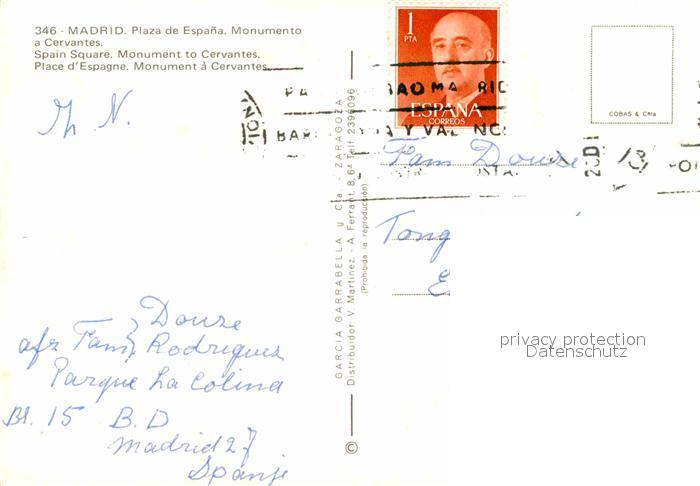 346 - MADRID. Plaza de España. Monumento
a Cervantes.
Spain Square. Monument to Cervantes.
Place d'Espagne. Monument à Cervantes.
1
PTA
ESPAÑA
CORREOS
COBAS & Cña
BAO MA RID
BAR
Y VAL NC
Fam Douze
Tong
E
GARCIA GARRABELLA y Cia. - ZARAGOZA
Distribuidor V. Martinez. - A. Ferrant, 8, 6.ª Telf. 2396096
(Prohibida la reproducción)
©
privacy protection
Datenschutz
Douze
afz Fam Rodriguez
Parque La Colina
Bl. 15 B.D
Madrid 27
Spanje